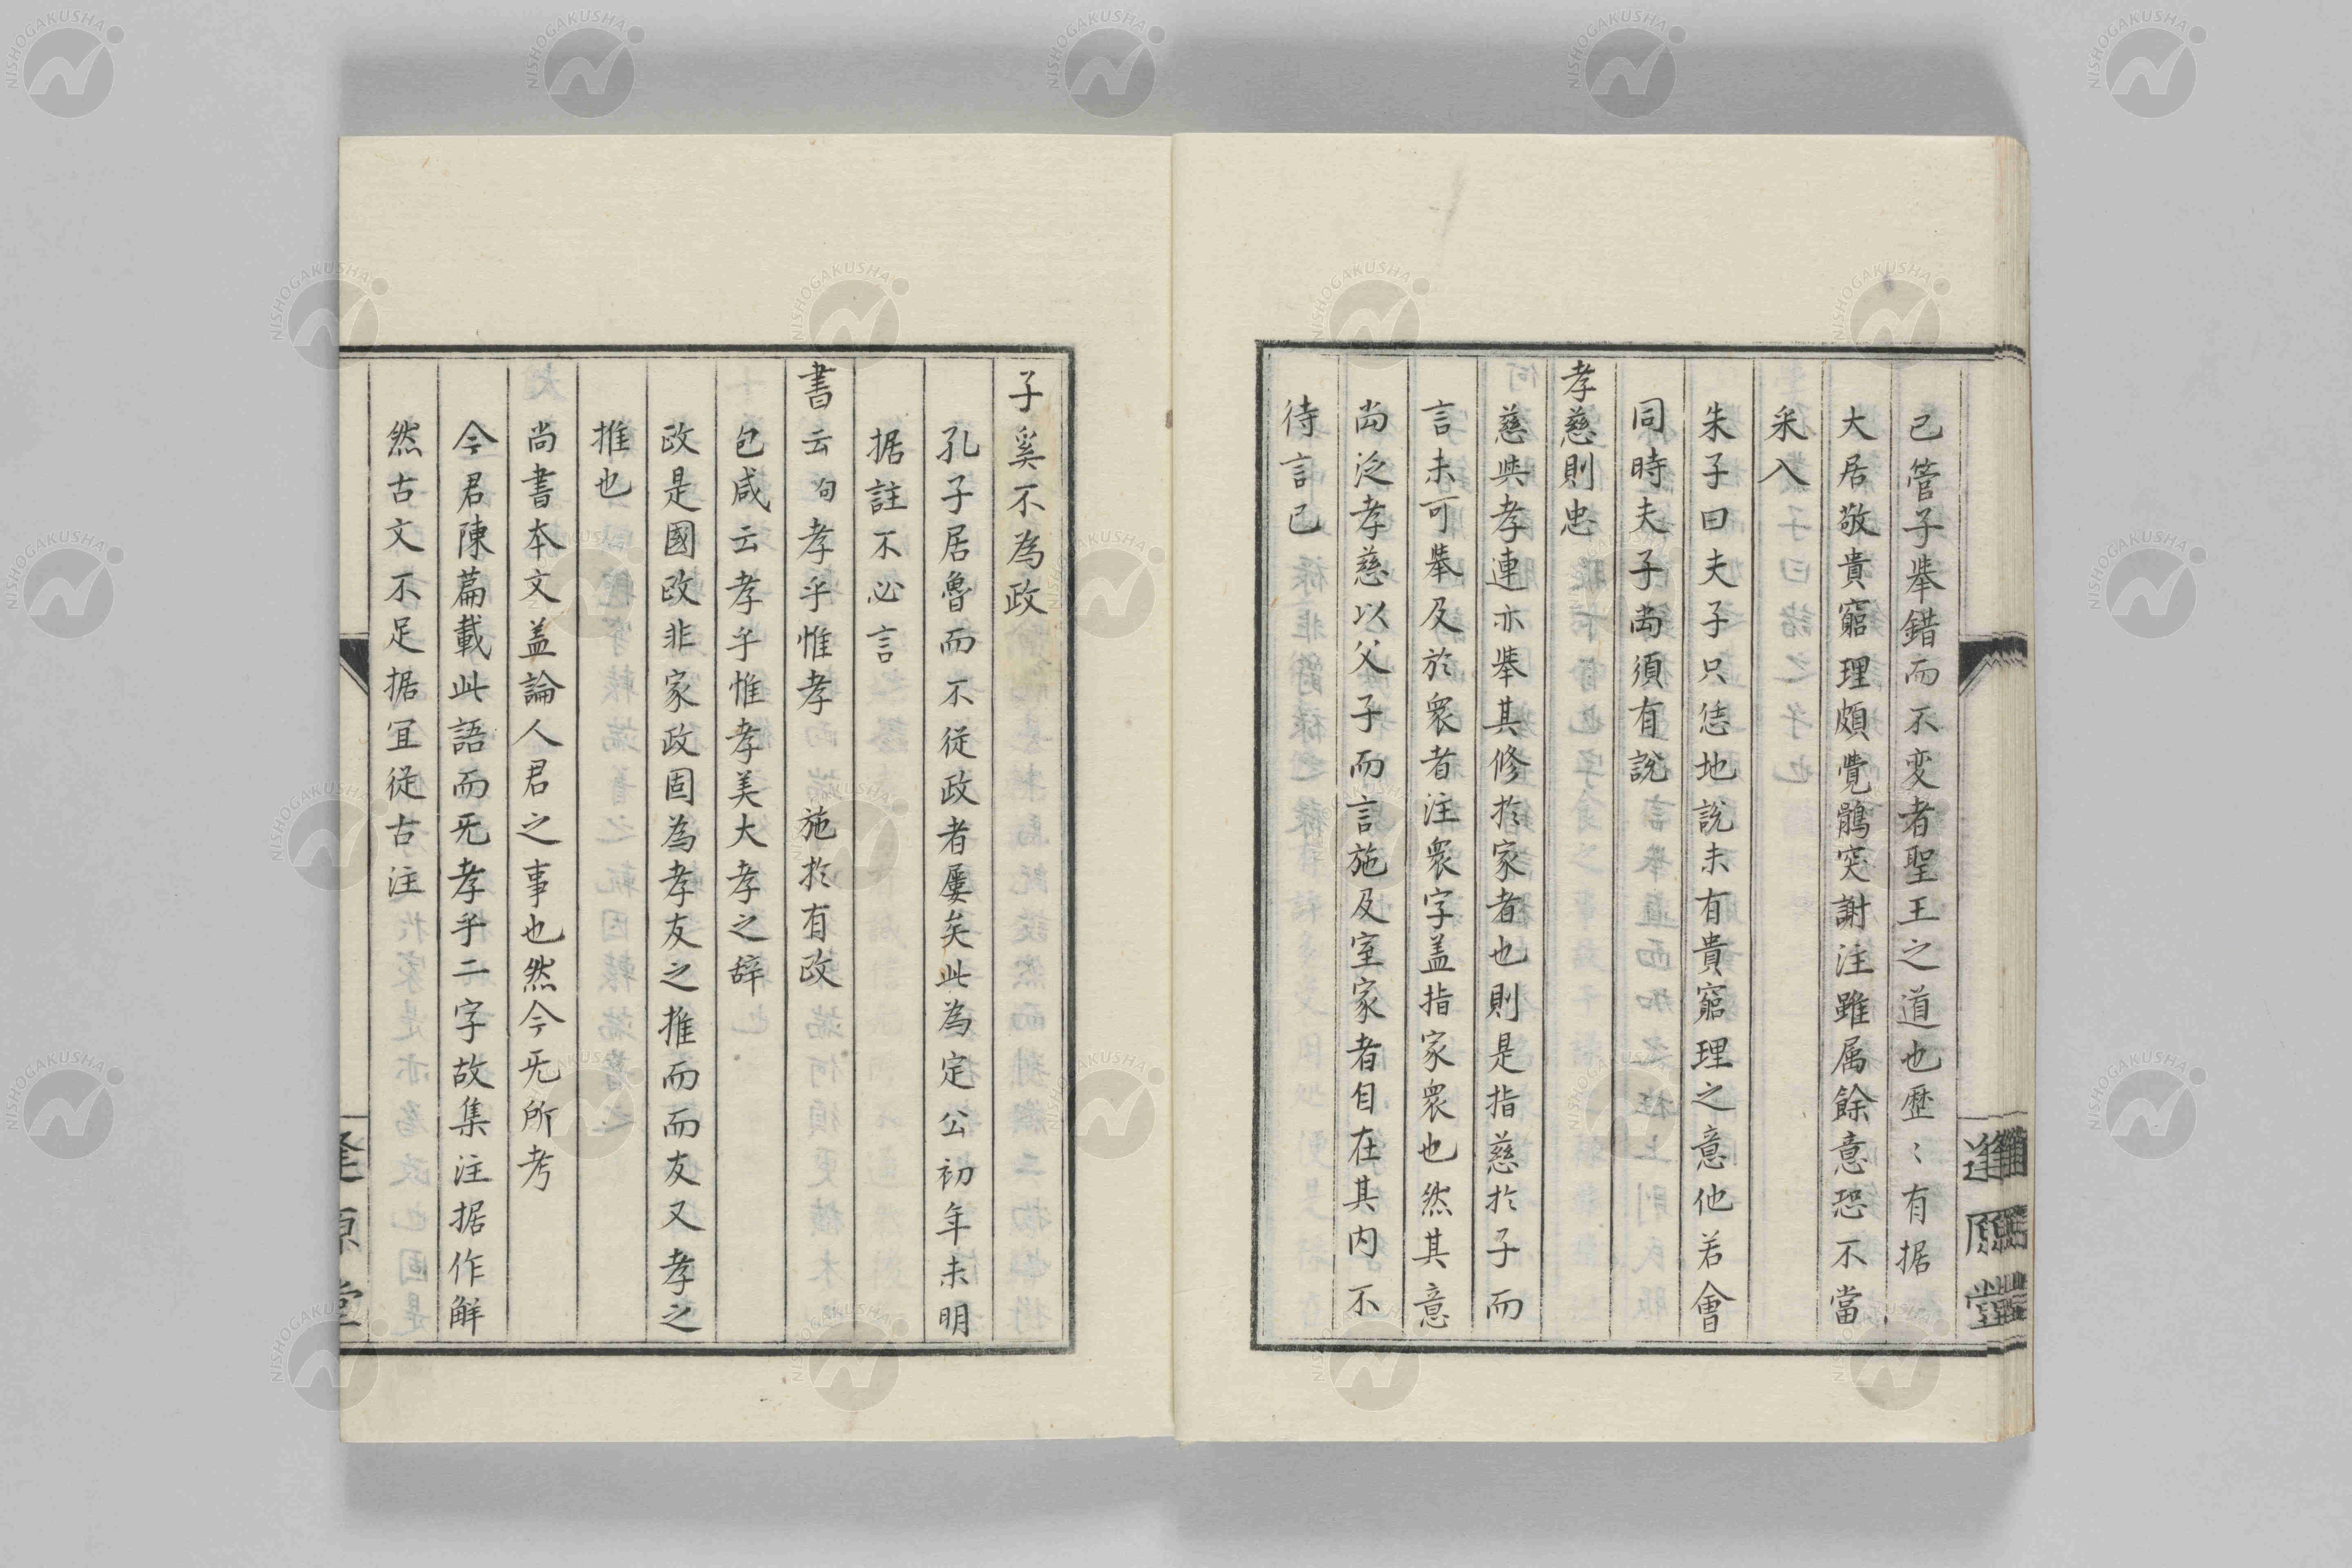 已管子舉錯而不変者聖王之道也歴〻有据
大居敬貴窮理頗覺鶻突謝注雖属餘意恐不當
采入
朱子曰夫子只恁地說未有貴窮理之意他若會
同時夫子尚須有說
孝慈則忠
慈與孝連亦舉其修於家者也則是指慈於子而
言未可舉及於衆者注衆字盖指家衆也然其意
尚泛孝慈以父子而言施及室家者自在其内不
待言已
逢原堂
子奚不為政
孔子居魯而不従政者屢矣此為定公初年未明
据註不必言
書云句孝乎惟孝 施於有政
包咸云孝乎惟孝美大孝之辞
政是國政非家政固為孝友之推而而友又孝之
推也
尚書本文盖論人君之事也然今旡所考
今君陳篇載此語而旡孝乎二字故集注据作解
然古文不足据冝従古注
逢原堂
NISHOGAKUSHA